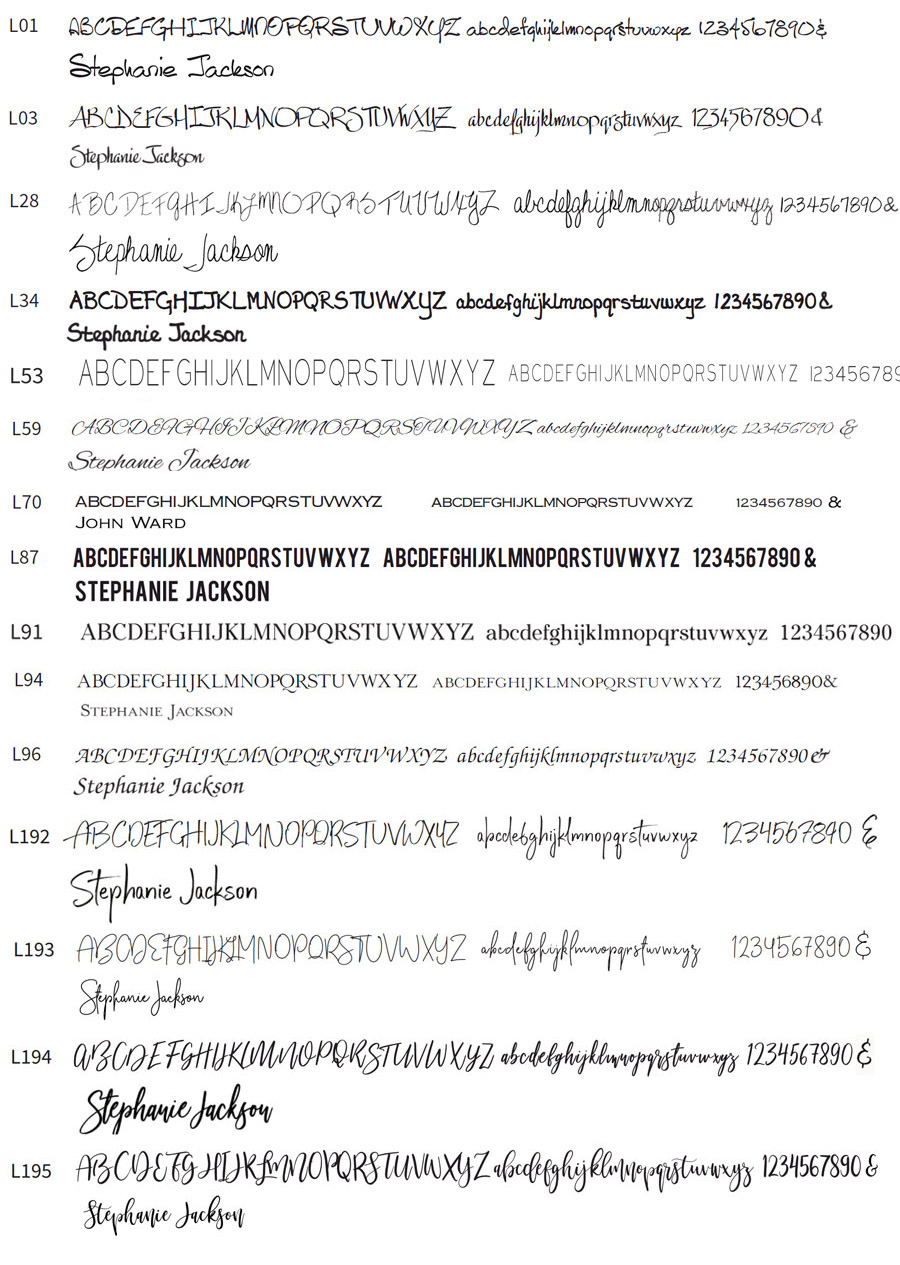 L01 ABCDEFGHIJKLMNOPQRSTUVWXYZ abcdefghijklmnopqrstuvwxyz 1234567890&
Stephanie Jackson
L03 ABCDEFGHIJKLMNOPQRSTUVWXYZ abcdefghijklmnopqrstuvwxyz 1234567890&
Stephanie Jackson
L28 ABCDEFGHIJKLMNOPQRSTUVWXYZ abcdefghijklmnopqrstuvwxyz 1234567890&
Stephanie Jackson
L34 ABCDEFGHIJKLMNOPQRSTUVWXYZ abcdefghijklmnopqrstuvwxyz 1234567890&
Stephanie Jackson
L53 ABCDEFGHIJKLMNOPQRSTUVWXYZ ABCDEFGHIJKLMNOPQRSTUVWXYZ 123456789
L59 ABCDEFGHIJKLMNOPQRSTUVWXYZ abcdefghijklmnopqrstuvwxyz 1234567890 &
Stephanie Jackson
L70 ABCDEFGHIJKLMNOPQRSTUVWXYZ ABCDEFGHIJKLMNOPQRSTUVWXYZ 1234567890 &
JOHN WARD
L87 ABCDEFGHIJKLMNOPQRSTUVWXYZ ABCDEFGHIJKLMNOPQRSTUVWXYZ 1234567890 &
STEPHANIE JACKSON
L91 ABCDEFGHIJKLMNOPQRSTUVWXYZ abcdefghijklmnopqrstuvwxyz 1234567890
L94 ABCDEFGHIJKLMNOPQRSTUVWXYZ ABCDEFGHIJKLMNOPQRSTUVWXYZ 123456890&
STEPHANIE JACKSON
L96 ABCDEFGHIJKLMNOPQRSTUVWXYZ abcdefghijklmnopqrstuvwxyz 1234567890&
Stephanie Jackson
L192 ABCDEFGHIJKLMNOPQRSTUVWXYZ abcdefghijklmnopqrstuvwxyz 1234567890 &
Stephanie Jackson
L193 ABCDEFGHIJKLMNOPQRSTUVWXYZ abcdefghijklmnopqrstuvwxyz 1234567890 &
Stephanie Jackson
L194 ABCDEFGHIJKLMNOPQRSTUVWXYZ abcdefghijklmnopqrstuvwxyz 1234567890 &
Stephanie Jackson
L195 ABCDEFGHIJKLMNOPQRSTUVWXYZ abcdefghijklmnopqrstuvwxyz 1234567890 &
Stephanie Jackson